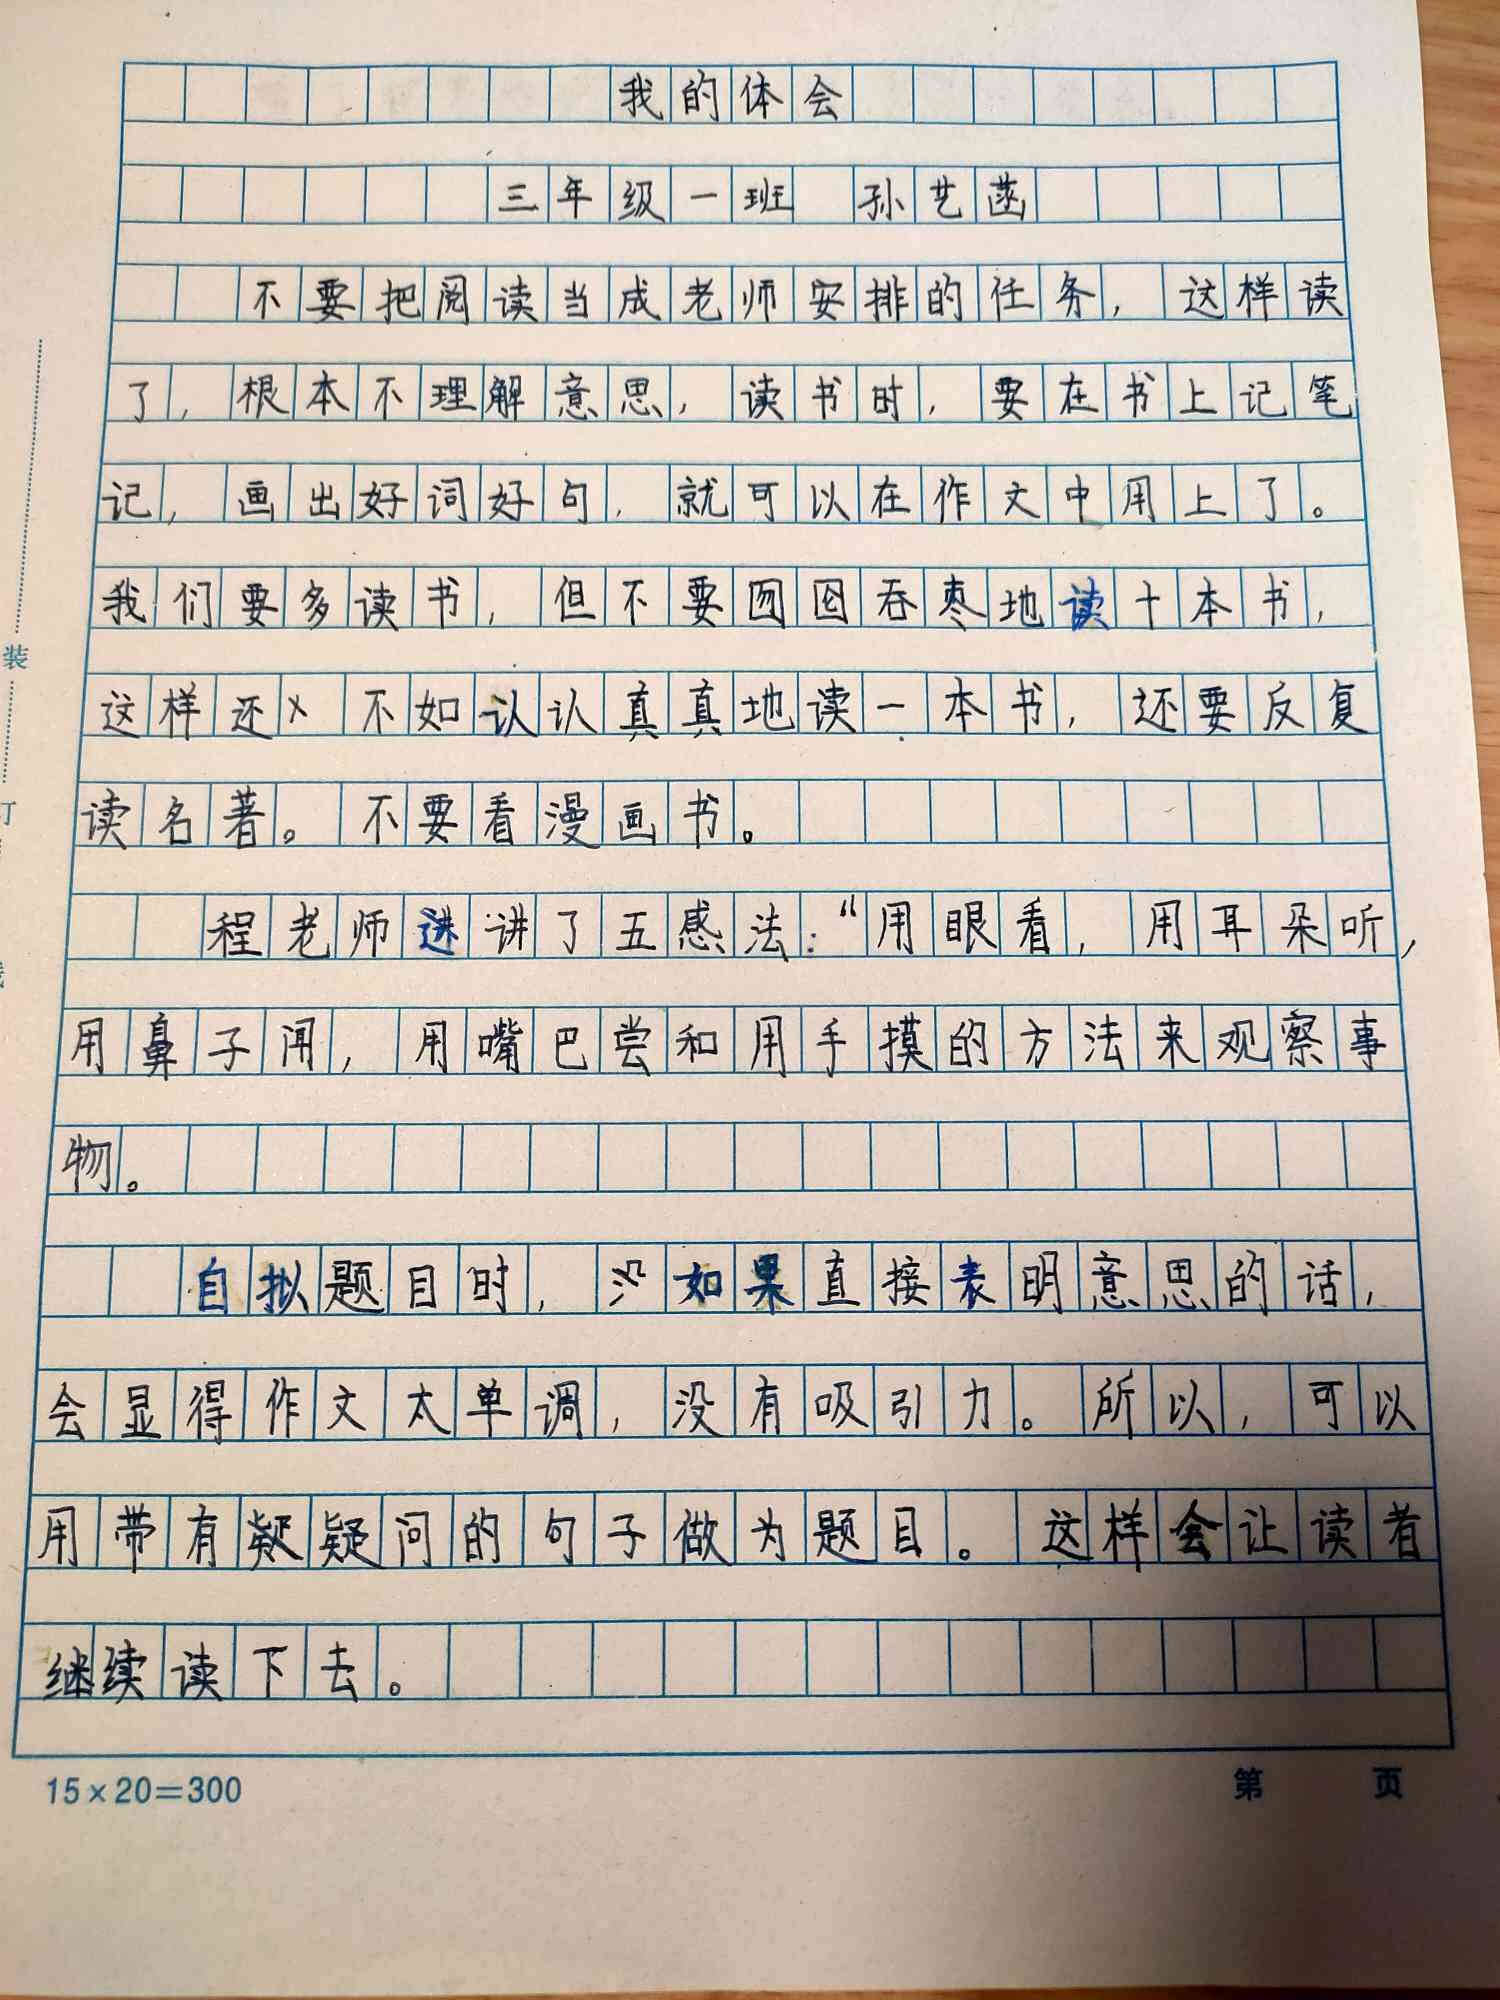 我的体会
三年级一班 孙艺菡
不要把阅读当成老师安排的任务，这样读
了，根本不理解意思，读书时，要在书上记笔
记，画出好词好句，就可以在作文中用上了。
我们要多读书，但不要囫囵吞枣地读十本书，
这样还不如认认真真地读一本书，还要反复
读名著。不要看漫画书。
程老师讲了五感法：“用眼看，用耳朵听，
用鼻子闻，用嘴巴尝和用手摸的方法来观察事
物。
自拟题目时，如果直接表明意思的话，
会显得作文太单调，没有吸引力。所以，可以
用带有疑疑问的句子做为题目。这样会让读者
继续读下去。
装
订
15×20=300
第 页